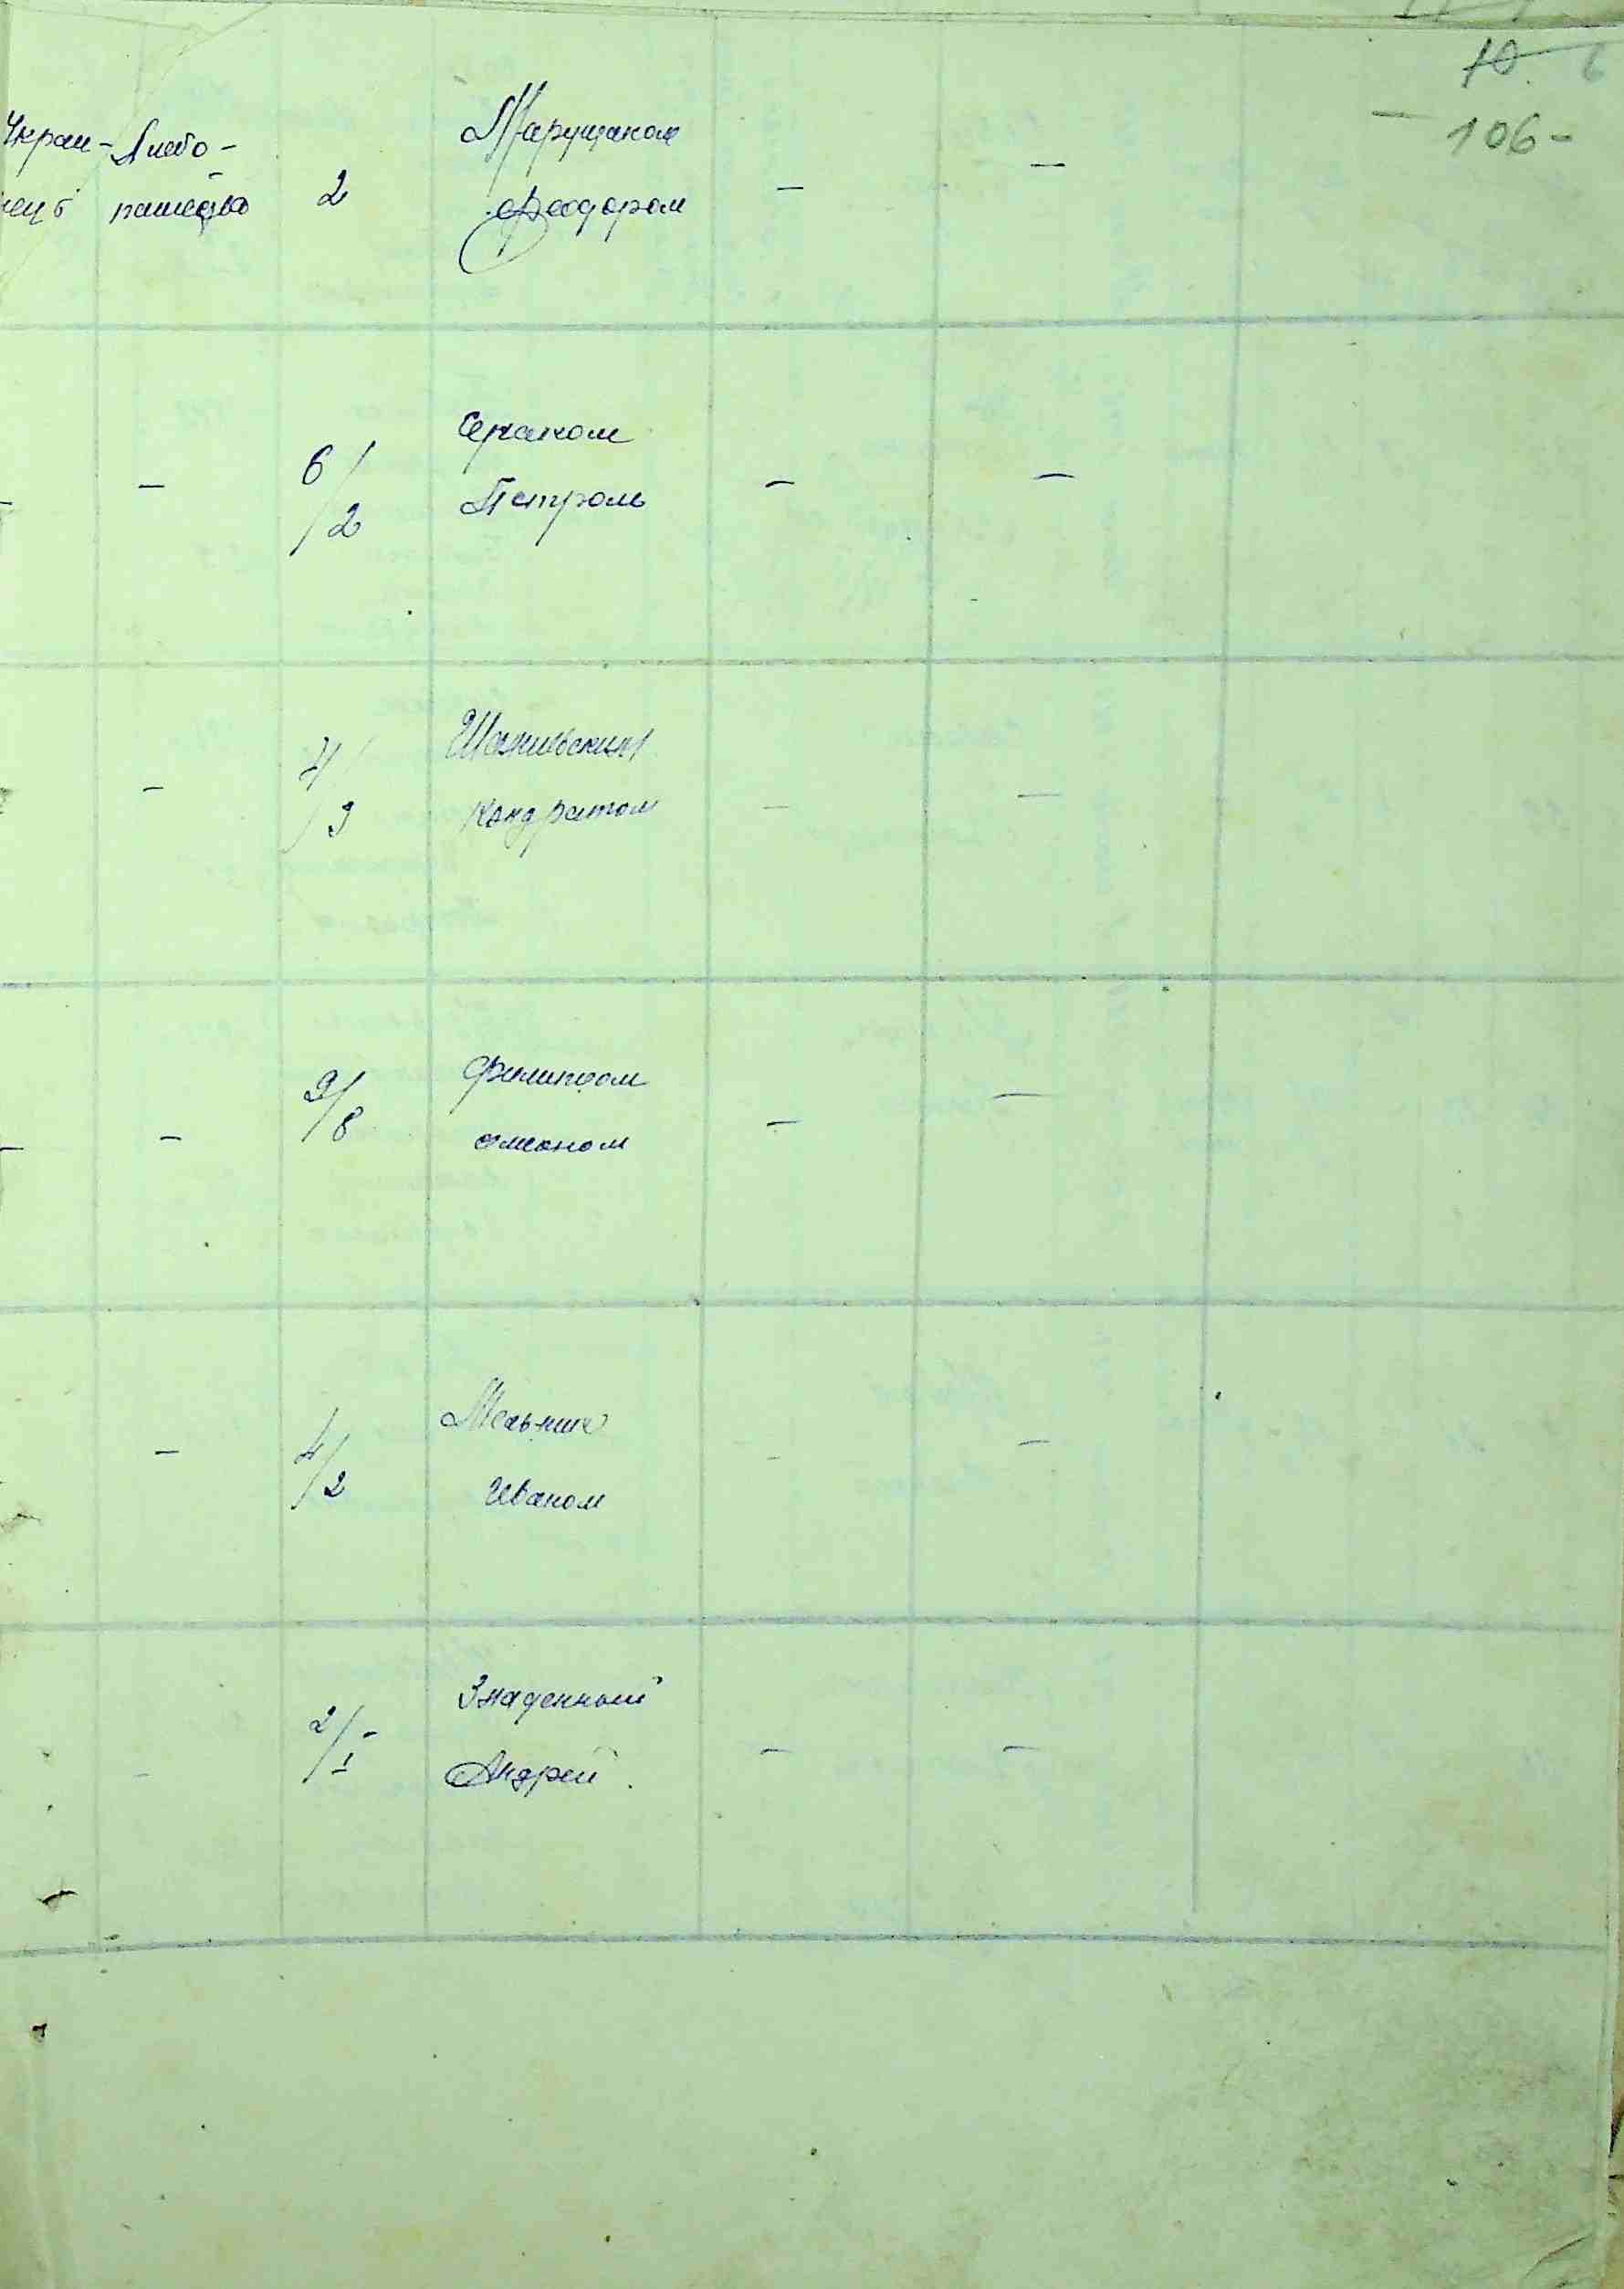 10.
106-
Украи- Хлебо-
нец пашество 2
Марущаком
Феодором
- -
- 6/2
Серпаком
Петром
- -
- 4/3
Шанивским
Кондратом
- -
- 9/8
Филипом
Симоном
- -
- 4/2
Мельник
Иваном
- -
- 2/1
Знаденный
Андрей.
- -